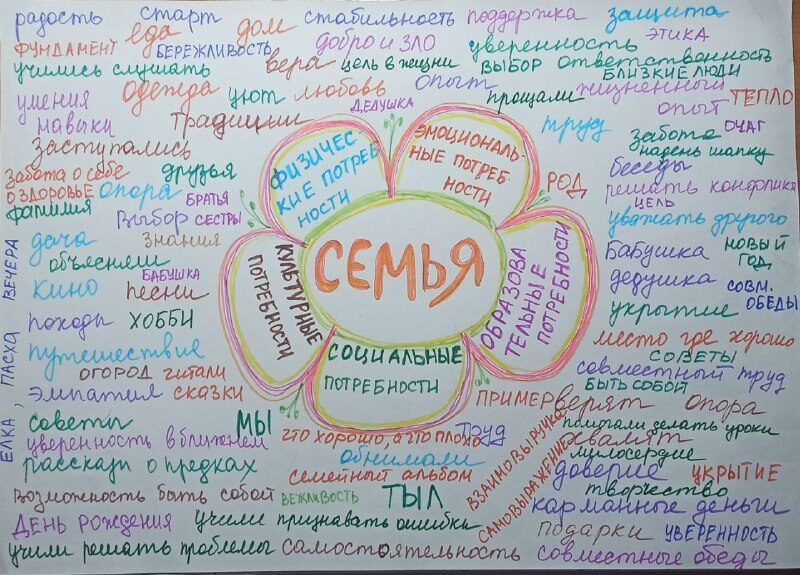 радость старт дом стабильность поддержка защита
ФУНДАМЕНТ еда БЕРЕЖЛИВОСТЬ добро и зло уверенность ЭТИКА
учились слушать вера цель в жизни ВЫБОР ответственность
БЛИЗКИЕ ЛЮДИ
умения одежда уют любовь опыт прощали жизненный опыт ТЕПЛО
ДЕДУШКА
навыки традиции труд забота ОЧАГ
заступались надень шапку
забота о себе друзья беседы
О ЗДОРОВЬЕ опора БРАТЬЯ РОД решать конфликт
фамилия выбор СЕСТРЫ ЦЕЛЬ
уважать другого
дача знания бабушка НОВЫЙ ГОД
объясняли дедушка СОВМ. ОБЕДЫ
БАБУШКА
кино песни укрытие
походы ХОББИ место где хорошо
путешествие СОВЕТЫ
ОГОРОД читали совместный труд
эмпатия сказки БЫТЬ СОБОЙ
ЕЛКА, ПАСХА, ВЕЧЕРА
ФИЗИЧЕС
КИЕ ПОТРЕБ
НОСТИ
ЭМОЦИОНАЛЬ-
НЫЕ ПОТРЕБ
НОСТИ
СЕМЬЯ
КУЛЬТУРНЫЕ
ПОТРЕБНОСТИ
ОБРАЗОВА
ТЕЛЬНЫЕ
ПОТРЕБНОСТИ
СОЦИАЛЬНЫЕ
ПОТРЕБНОСТИ
ПРИМЕР верят опора
советы МЫ что хорошо, а что плохо труд помогали делать уроки
уверенность в ближнем обнимали ВЗАИМОВЫРУЧКА хвалят
милосердие
рассказы о предках семейный альбом САМОВЫРАЖЕНИЕ доверие УКРЫТИЕ
возможность быть собой ВЕЖЛИВОСТЬ ТЫЛ творчество
карманные деньги
ДЕНЬ РОЖДЕНИЯ учили признавать ошибки подарки УВЕРЕННОСТЬ
учили решать проблемы самостоятельность совместные обеды